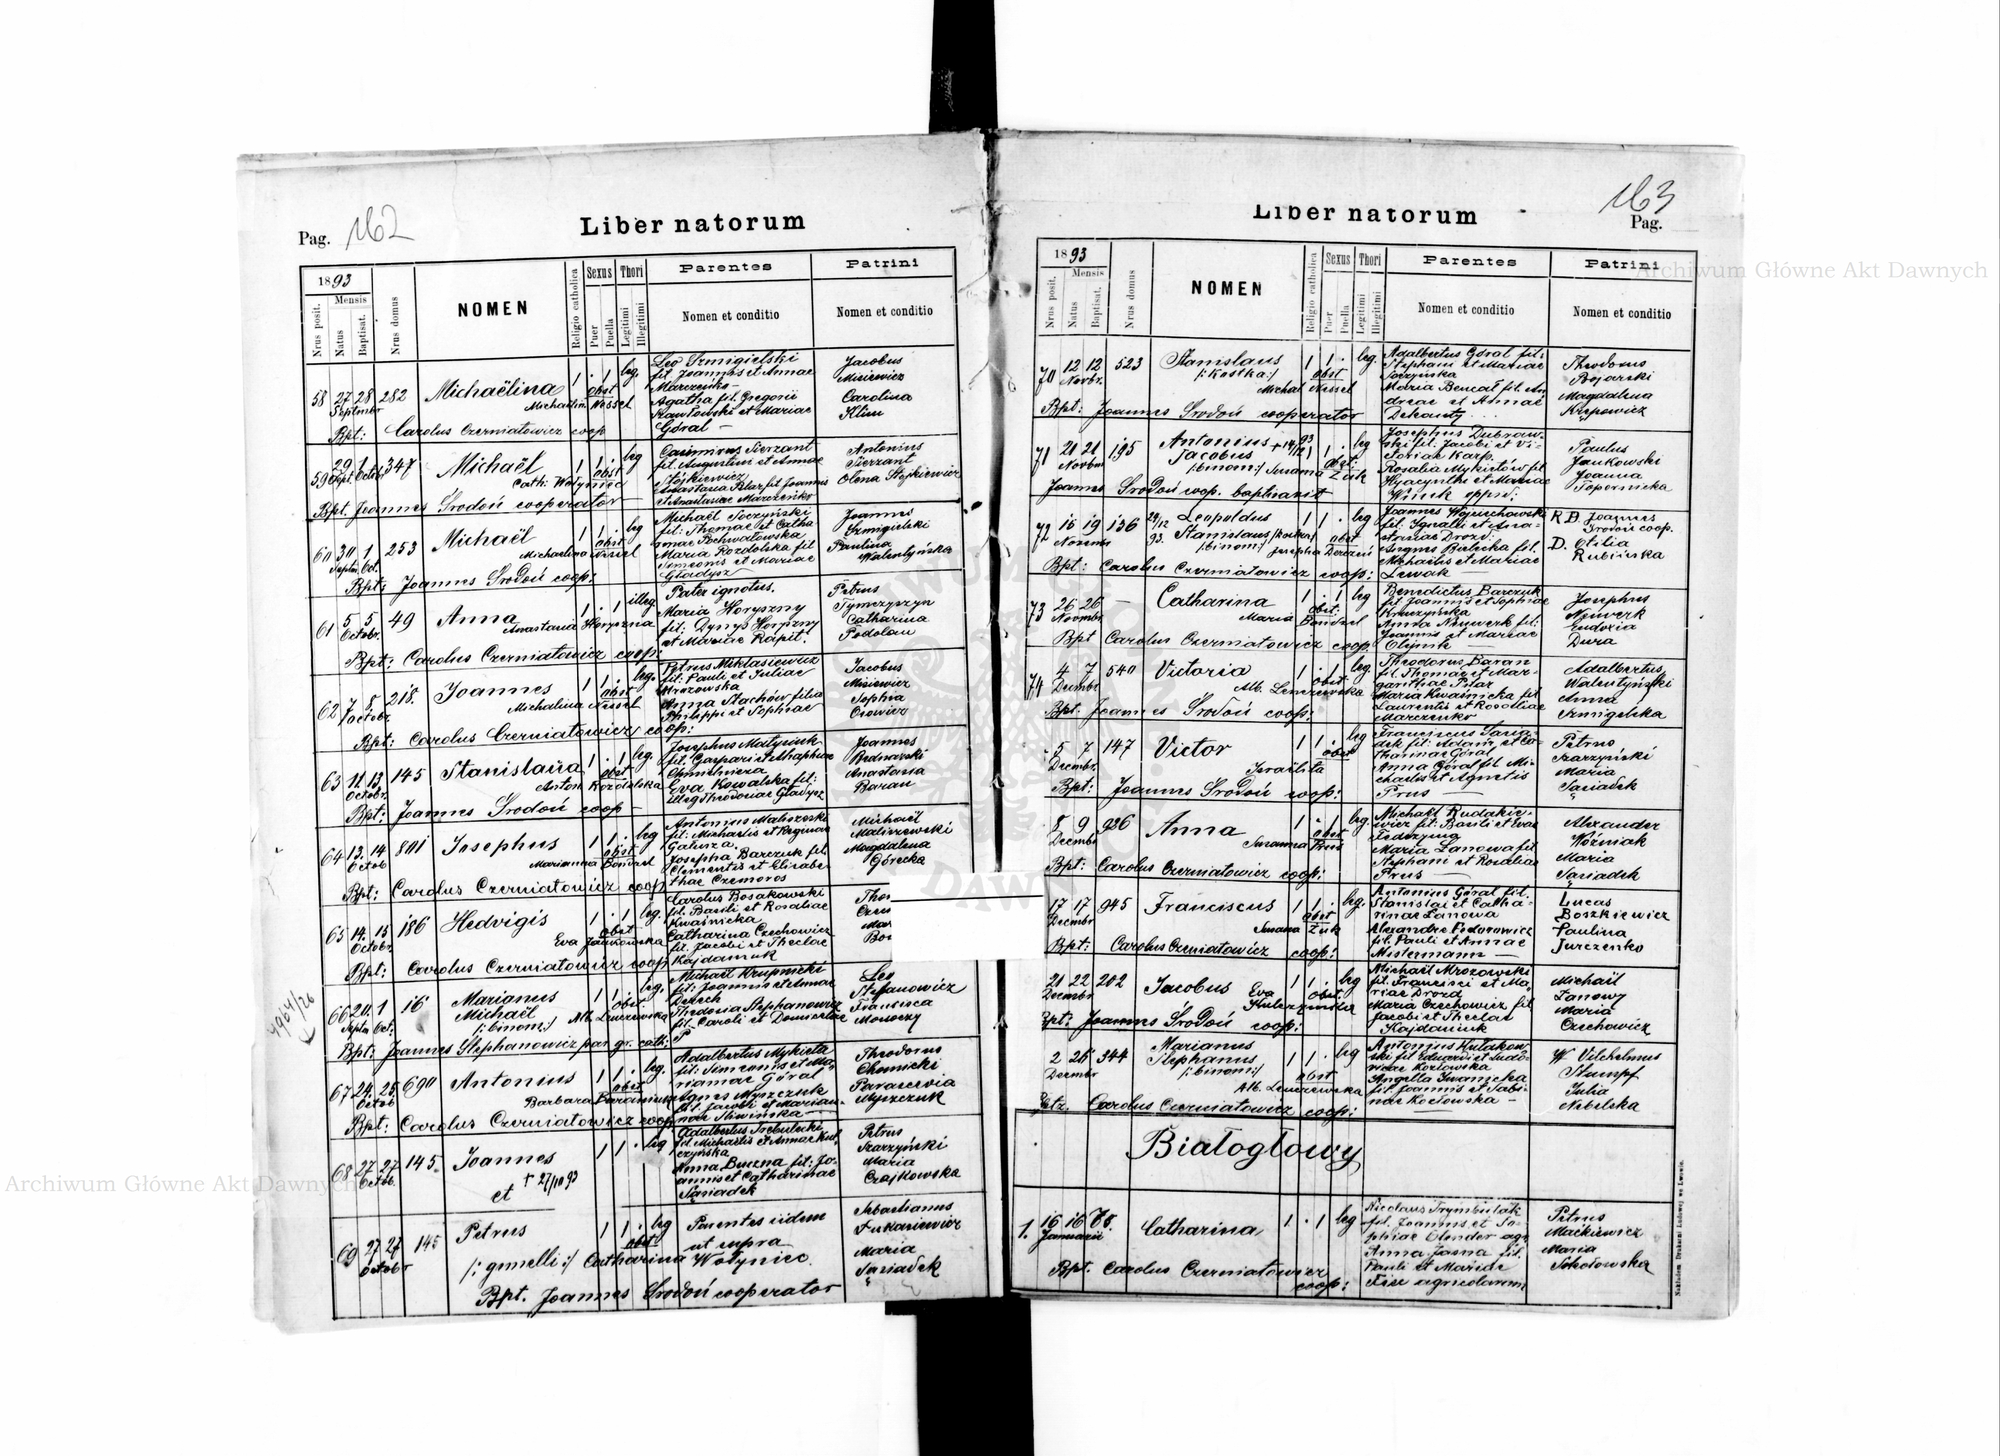 Liber natorum
Pag. 162
1893
Mensis
Nrus posit.
Natus
Baptisat.
Nrus domus
NOMEN
Religio catholica
Sexus
Puer
Puella
Thori
Legitimi
Illegitimi
Parentes
Nomen et conditio
Patrini
Nomen et conditio
58 27 28 282 Michaëlina 1 . 1 leg.
Septembr
obst
Bpt: Carolus Czerniatowicz coop
fil. Joannis et Annae
Marczenko
Agatha fil. Gregorii
Góral
Jacobus
Misiewicz
Carolina
Klim
59 29 1 347 Michaël 1 1 . leg
Cath: Wołyniec
obst
Bpt. Joannes Środoń cooperator
Casimirus Sierzant
fil. Augustini et Annae
Stojkiewicz
Anastasia Pelaz fil Joannis
et Anastasiae Marczenko
Antonius
Sierzant
Olena Stojkiewicz
60 30 1 253 Michaël 1 1 . leg
Septm. Oct.
Michaelina Nessel
obst
Bpt: Joannes Środoń coop:
fil: Thomae et Catha
rinae Pochwatowska
Maria Rozdolska fil
Simeonis et Mariae
Gładysz
Joannes
Paulina
Walentyńska
61 5 5 49 Anna 1 . 1 illeg
Octobr.
Anastasia Horyszna
Bpt: Carolus Czerniatowicz coop:
Pater ignotus.
Maria Horyszny
fil: Dynys Horyszny
et Mariae Rapit.
Petrus
Tymczyszyn
Catharina
Podolan
62 7 8 218. Joannes 1 1 . leg.
Octobr.
Michalina Nessel
obst
Bpt: Carolus Czerniatowicz coop:
Petrus Miklasiewicz
fil: Pauli et Juliae
Mrozowska
Anna Stachów filia
Philippi et Sophiae
Jacobus
Misiewicz
Sophia
Osowicz
63 11. 13. 145 Stanislava 1 . 1 leg.
Octobr.
Anton Rozdolska
obst
Bpt: Joannes Środoń coop
Eva Kowalska fil:
illeg Theodoriae Gładysz
Joannes
Bednarski
Anastasia
Baran
64 13. 14 801 Josephus 1 1 . leg
Octob
Marianna Bandzel
obst
Bpt: Carolus Czerniatowicz coop
Antonius Maliszeski
fil: Michaelis et Reginae
Galusza.
Josepha Barczuk fil.
Clementis et Elisabe-
thae Czemoros
Michaël
Maliszewski
Magdalena
Górecka
65 14. 15 186 Hedvigis 1 . 1 leg.
Octobr.
Eva Jankowska
obst
Bpt: Carolus Czerniatowicz coop
Carolus Bosakowski
fil. Basili et Rosaliae
Kwaśnicka
Catharina Czechowicz
fil. Jacobi et Theclae
Kajdaniuk
66 20. 1 16 Marianus 1 1 . leg.
Septm. Oct.
Michaël
/:binom:/
Alb. Lenczewska
obst.
Bpt: Joannes Stephanowicz par gr. cath:
Michaël Krupnicki
fil: Joannis et Annae
Theodosia Stephanowicz
fil. Caroli et Domicelae
Leo
Stefanowicz
Francisca
7964/26
67 24. 25. 690 Antonius 1 1 . leg.
Octob
Barbara Baraniuk
obst
Bpt: Carolus Czerniatowicz coop
Adalbertus Mykieta
fil: Simeonis et Ma-
riannae Góral
Agnes Myszczuk
fil. Jacobi et Marian-
nae Śliwińska
Theodorus
Chomicki
Parascevia
Myszczuk
68 27 27 145. Joannes 1 1 . leg
Octob.
et + 27/10 93
fil. Michaelis et Annae Kul-
czyńska
Anna Buczna fil: Jo-
annis et Catharinae
Sąsiadek
Petrus
Szarzyński
Maria
Czajkowska
69 27 27 145 Petrus 1 1 . leg
Octobr
obst
/: gemelli :/ Catharina Wołyniec.
Bpt. Joannes Środoń cooperator
Parentes iidem
ut supra
Sebastianus
Łukasiewicz
Maria
Sąsiadek
Liber natorum
163
Pag.
1893
Mensis
Nrus posit.
Natus
Baptisat.
Nrus domus
NOMEN
Religio catholica
Sexus
Puer
Puella
Thori
Legitimi
Illegitimi
Parentes
Nomen et conditio
Patrini
Nomen et conditio
70 12 12 523 Stanislaus 1 1 . leg.
Novbr.
/:Kostka:/
obst
Michal. Nessel
Bpt: Joannes Środoń cooperator
Adalbertus Góral fil:
Stephani et Mariae
Soczyńska
Maria Bencal fil. An
dreae et Annae
Theodorus
Bojarski
Magdalena
Krysowicz
71 21 21 195 Antonius 1 1 . leg
Novbr
Jacobus
/:binom:/ Susanna Żuk
obst:
Joannes Środoń coop. baptisavit
Josephus Dubraw-
ski fil: Jacobi et Vi-
toriae Karp.
Rosalia Mykietów fil
Hyacynthi et Mariae
Paulus
Jankowski
Joanna
Topornicka
72 15 19 136 Leopoldus 1 1 . leg
Novembr
Stanislaus /Kostka/
/:binom:/
obst
Bpt: Carolus Czerniatowicz coop:
Joannes Wojciechowski
fil: Ignatii et Ana-
stasiae Drozd:
Agnes Bielecka fil.
Michaelis et Mariae
Lewak
R.D. Joannes
Środoń coop.
D. Otilia
Rubińska
73 26 26 Catharina 1 . 1 leg
Novmbr.
Maria Bandzel
obst:
Bpt Carolus Czerniatowicz coop.
Benedictus Barczuk
fil Joannis et Sophiae
Kruszyńska
Anna Najwerk fil:
Joannis et Mariae
Olejnik
Josephus
Najwerk
Eudoxia
Dura
74 4 7 540 Victoria 1 . 1 leg.
Decembr
Alb. Lenczewska
obst
Bpt: Joannes Środoń coop:
Theodorus Baran
fil. Thomae et Mar-
garithae Pelaz
Maria Kwaśnicka fil
Laurentii et Rosaliae
Marczenko
Adalbertus
Walentyński
Anna
Szmigelska
5 7 147 Victor 1 1 . leg
Decembr.
Israëlita
obst
Bpt: Joannes Środoń coop:
Franciscus Sąsia-
dek fil: Adami et Ca-
tharinae Góral
Anna Góral fil. Mi-
chaelis et Agnetis
Prus
Petrus
Szarzyński
Maria
Sąsiadek
8 9 926 Anna 1 . 1 leg.
Decembr
Susanna Prus
obst
Bpt: Carolus Czerniatowicz coop:
Michaël Rudakie-
wicz fil: Basili et Evae
Fedczyna
Maria Łanowa fil.
Stephani et Rosaliae
Prus
Alexander
Woźniak
Maria
Sąsiadek
17 17 945 Franciscus 1 1 . leg.
Decembr
Susanna Żuk
obst
Bpt: Carolus Czerniatowicz coop:
Antonius Góral fil.
Stanislai et Catha-
rinae Łanowa
Alexandra Fedorowicz
fil. Pauli et Annae
Mistermann
Lucas
Boszkiewicz
Paulina
Jurczenko
21 22 202 Jacobus 1 1 . leg
Decembr
Eva
obst.
Bpt: Joannes Środoń coop:
Michaël Mrozowski
fil. Francisci et Ma-
riae Drozd
Maria Czechowicz fil
Jacobi et Theclae
Kajdaniuk
Michaël
Łanowy
Maria
Czechowicz
2 26 344 Marianus 1 1 . leg
Decembr
Stephanus
/:binom:/
Alb. Lenczewska
obst
Carolus Czerniatowicz coop:
Antonius Hulakow-
ski fil Eduardi et Ludo-
vicae Kozłowska
Angela Iwanicka
fil. Joannis et Sabi-
nae Kozłowska
W Vilhelmus
Stumpf
Julia
Nebelska
Białogłowy
1. 16 16 Catharina 1 . 1 leg
Januarii
Bpt. Carolus Czerniatowicz
coop:
Nicolaus Trymbulak
fil. Joannis et So-
phiae Olender agr
Anna Jasna fil.
Pauli et Mariae
agricolarum
Petrus
Maćkiewicz
Maria
Sokołowska
Nakładem Drukarni Ludowej we Lwowie.
Archiwum Główne Akt Dawnych
Archiwum Główne Akt Dawnych